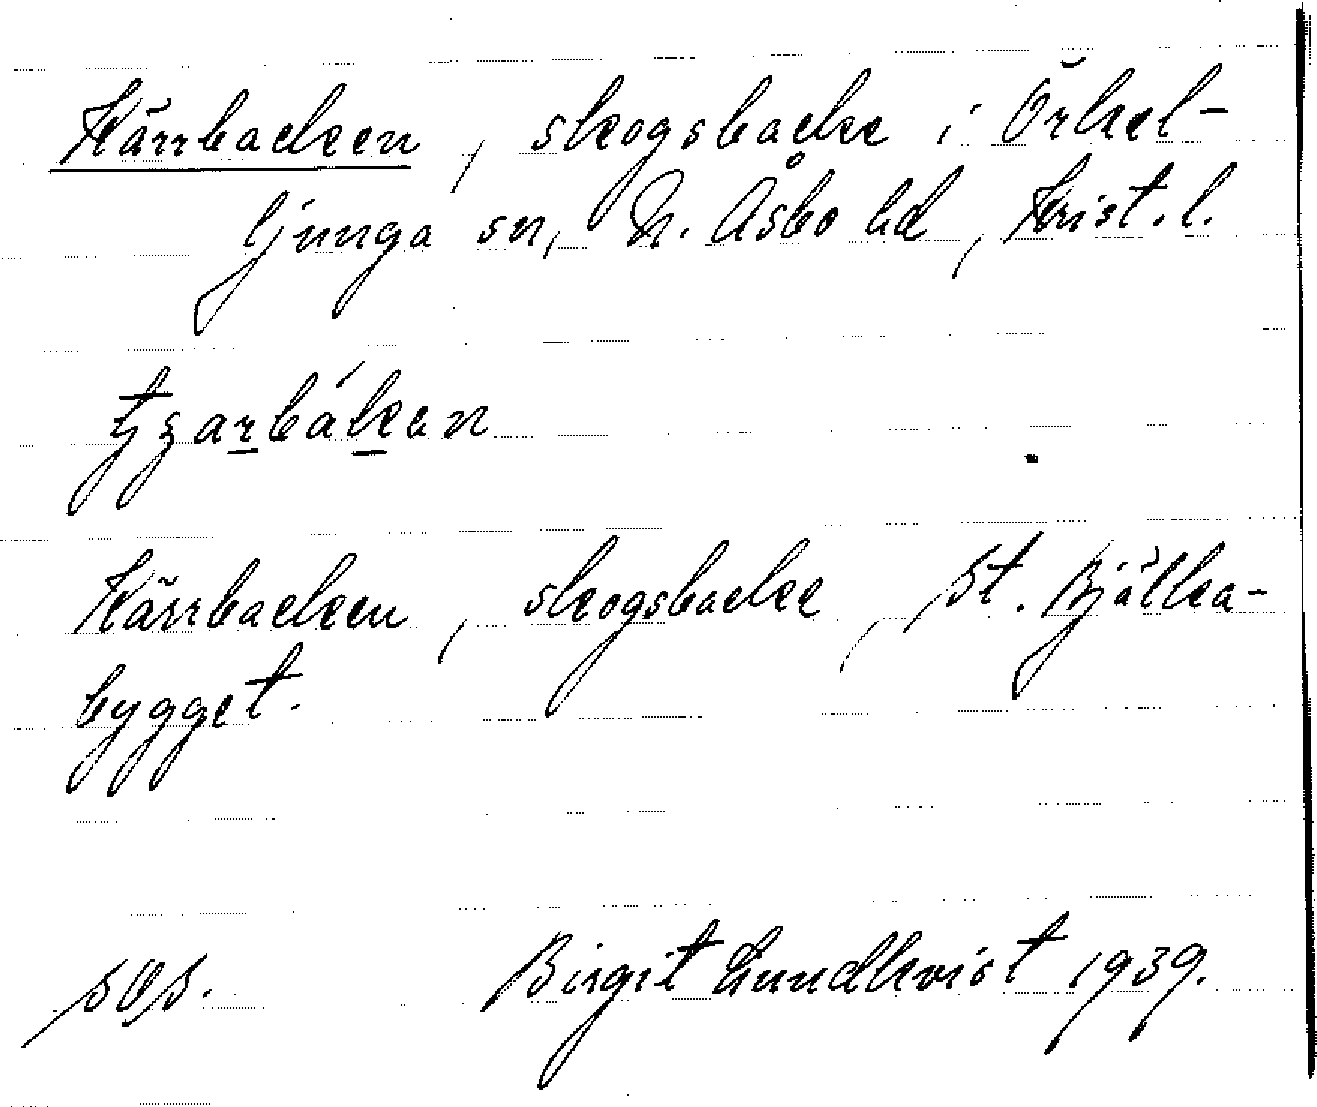 Kärrbacken, skogsbacke i Örkel-
ljunga sn, N. Åsbo hd, Krist. l.
Kärrbacken, skogsbacke, St. Bjälka-
bygget.
Birgit Lundkvist 1939.